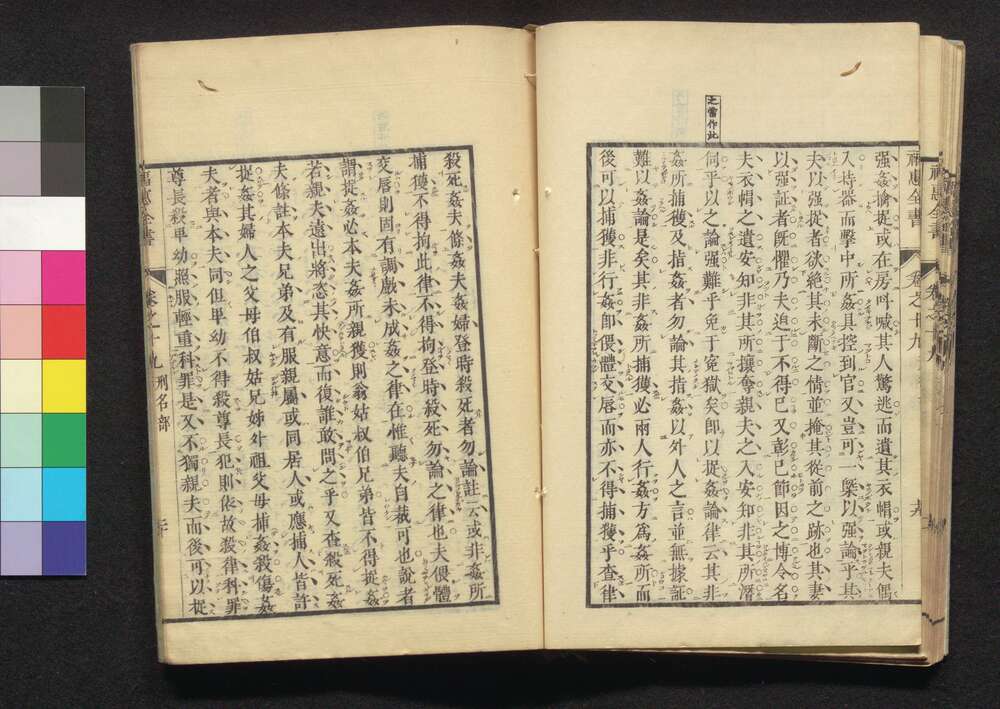 福惠全書 卷之十九 十九
之當作此
强姦偷捉或在房呌喊其人驚逃而遺其衣帽或親夫偶
入持器而擊中所姦具控到官又豈可一槩以强論乎其
夫以强捉者欲絕其未斷之情並掩其從前之跡也其妻
以强証者旣懼乃夫迫于不得已又彰已節因之博令名
夫衣帽之遺安知非其所攘奪親夫之入安知非其所潛
伺乎以之論强難乎免于寃獄矣即以捉姦論律云其非
姦所捕獲及指姦者勿論其指姦以外人之言並無據証
難以姦論是矣其非姦所捕獲必兩人行姦方爲姦所而
後可以捕獲非行姦卽偎體交唇而亦不得捕獲乎查律
殺死姦夫條姦夫姦婦登時殺死者勿論註云或非姦所
捕獲不得拘此律不得拘登時殺死勿論之律也夫偎體
交唇則固有調戲未成姦之律在惟聽夫自裁可也說者
謂捉姦必本夫姦所親獲則翁姑叔伯兄弟皆不得捉姦
若親夫遠出將恣其快意而復誰敢問之乎又查殺死姦
夫條註本夫兄弟及有服親屬或同居人或應捕人皆許
捉姦其婦人之父母伯叔姑兄姊外祖父母捕姦殺傷姦
夫者與本夫同但卑幼不得殺尊長犯則依故殺律科罪
尊長殺卑幼照服輕重科罪是又不獨親夫而後可以捉
福惠全書 卷之十九 刑名部 二十